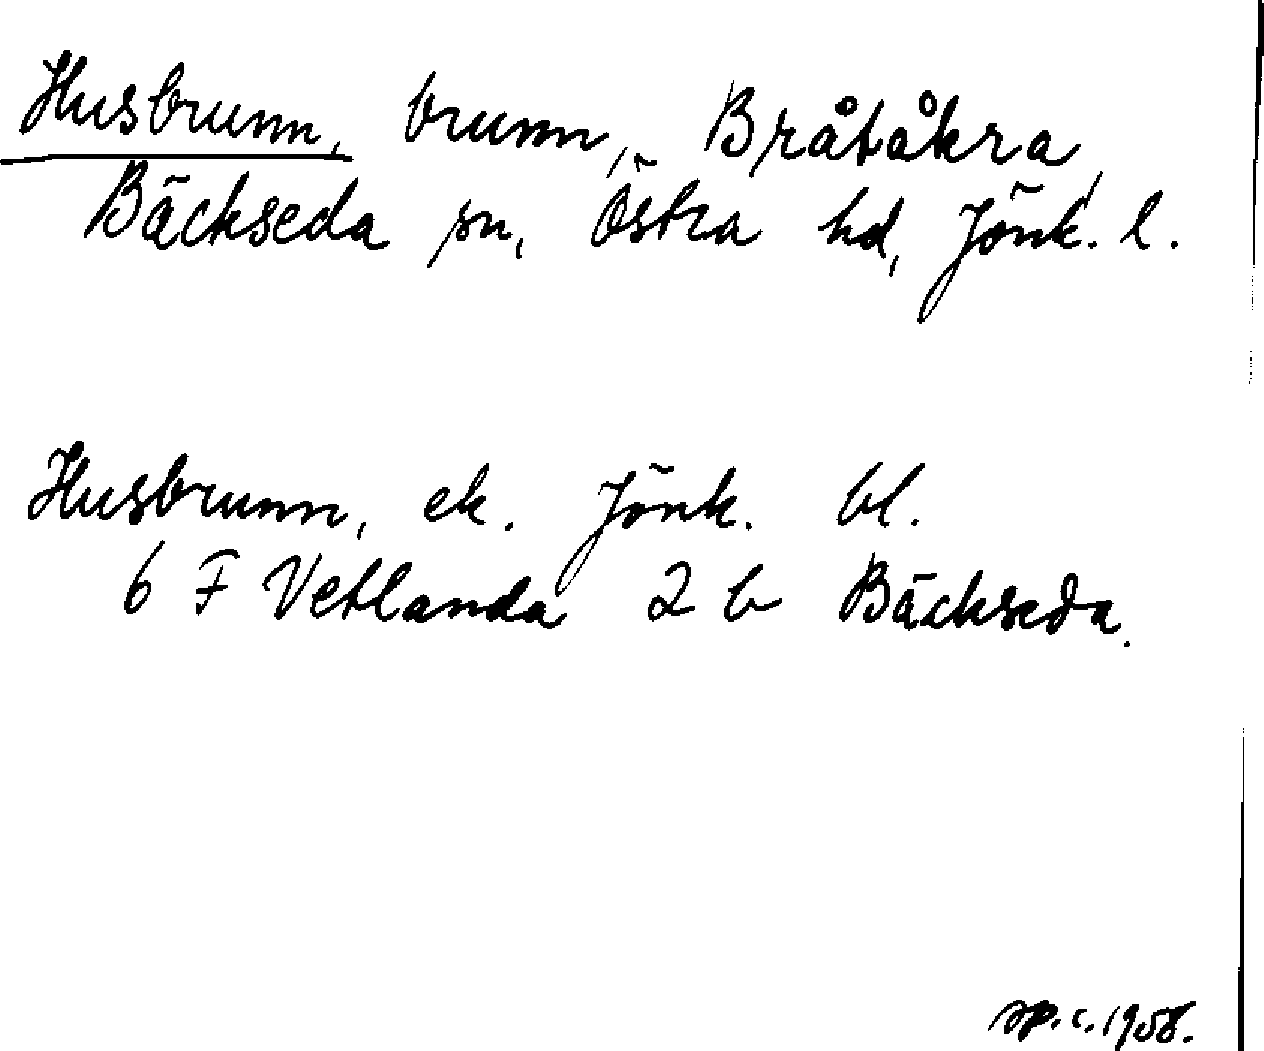 Husbrunn, brunn, Bråtåkra,
Bäckseda sn, Östra hd, Jönk. l.
Husbrunn, ek. Jönk. bl.
6 F Vetlanda 2 b Bäckseda.
sp. c. 1958.